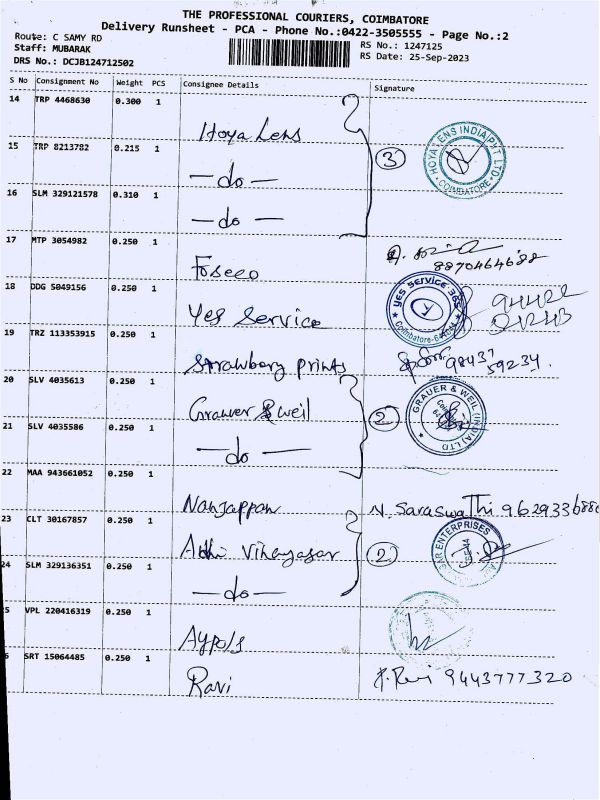 THE PROFESSIONAL COURIERS, COIMBATORE
Delivery Runsheet - PCA - Phone No.:0422-3505555 - Page No.:2
Route: C SAMY RD
RS No.: 1247125
Staff: MUBARAK
RS Date: 25-Sep-2023
DRS No.: DCJB124712502
S No Consignment No Weight PCS Consignee Details Signature
14 TRP 4468630 0.300 1 Hoya Lens
15 TRP 8213782 0.215 1 —do—
3 HOYA LENS INDIA PVT LTD. * COIMBATORE *
16 SLM 329121578 0.310 1 —do—
17 MTP 3054982 0.250 1 Foseco
8870464688
18 DDG 5049156 0.250 1 Yes Service
YES SERVICE 360
19 TRZ 113353915 0.250 1 Strawbery prints 98437 59234.
20 SLV 4035613 0.250 1 Grawer & weil
2 GRAUER & WEIL (INDIA) LTD
21 SLV 4035586 0.250 1 —do—
22 MAA 943661052 0.250 1 Nanjappan N. Saraswathi
23 CLT 30167857 0.250 1 Adhi Vinayagar
2 ENTERPRISES
24 SLM 329136351 0.250 1 —do—
5 VPL 220416319 0.250 1
6 SRT 15064485 0.250 1 Ravi 9443777320